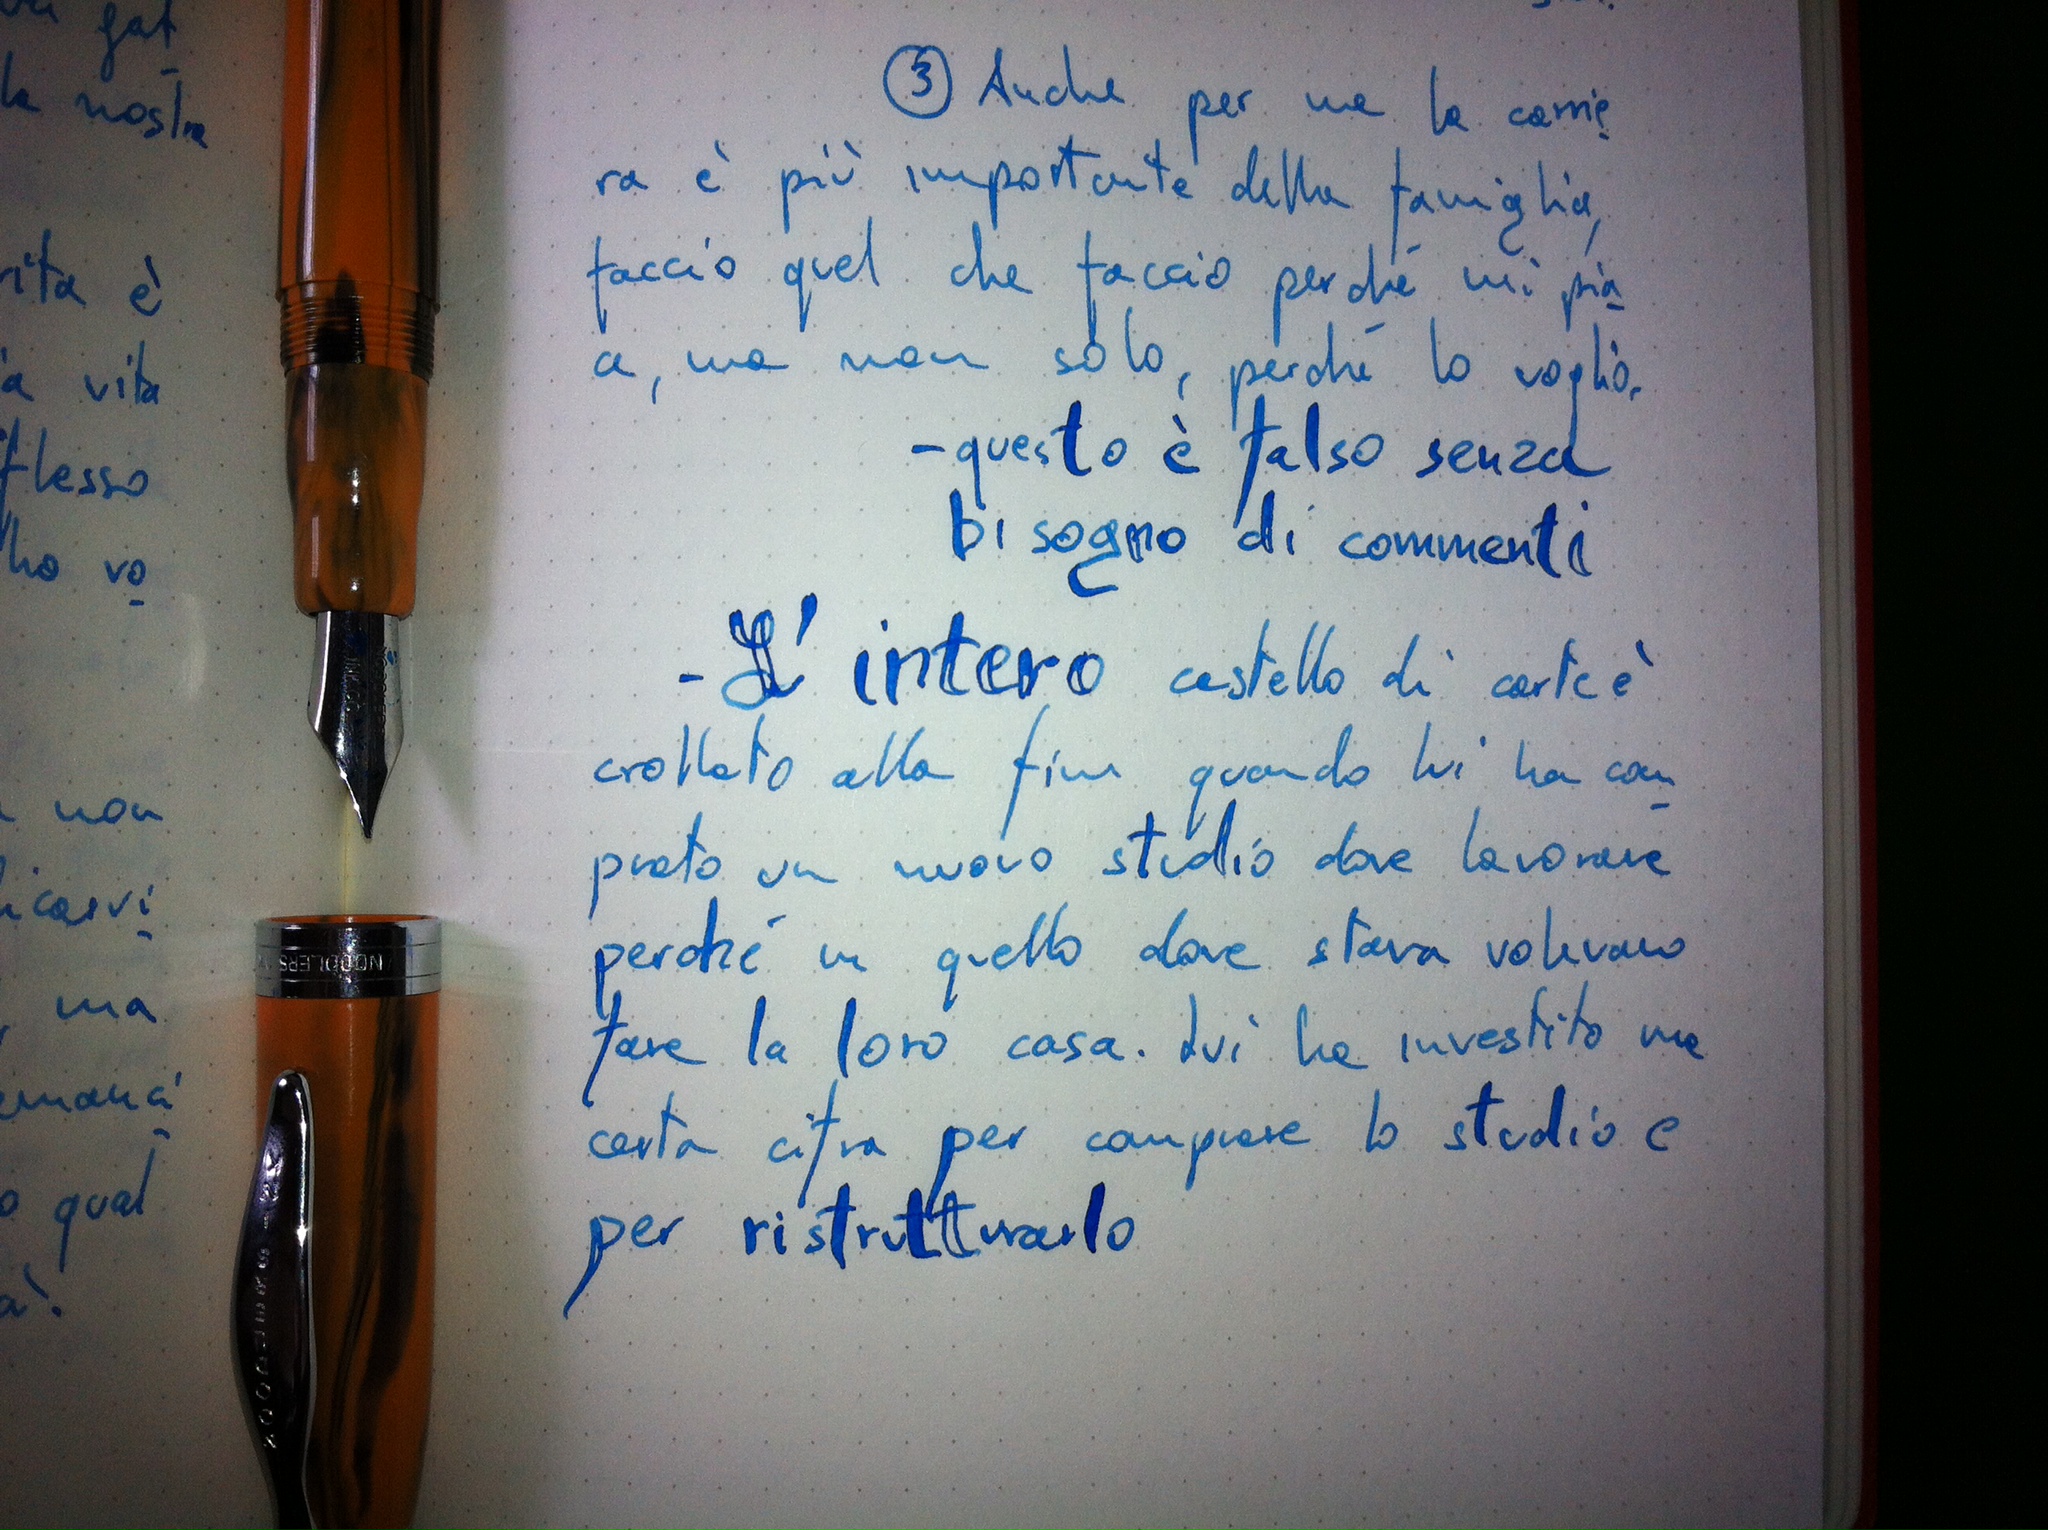 gat
la nostra
vita è
vita
flesso
ho vo
non
icarvi
ma
qual
③ Anche per me la carrie
ra è più importante della famiglia,
faccio quel che faccio perché mi pia
a, ma non solo, perché lo voglio.
-questo è falso senza
bisogno di commenti
-L'intero castello di carte è
crollato alla fine quando lui ha com
prato un nuovo studio dove lavorare
perché in quello dove stava volevano
fare la loro casa. Lui ha investito una
certa cifra per comprare lo studio e
per ristrutturarlo
NOODLERS